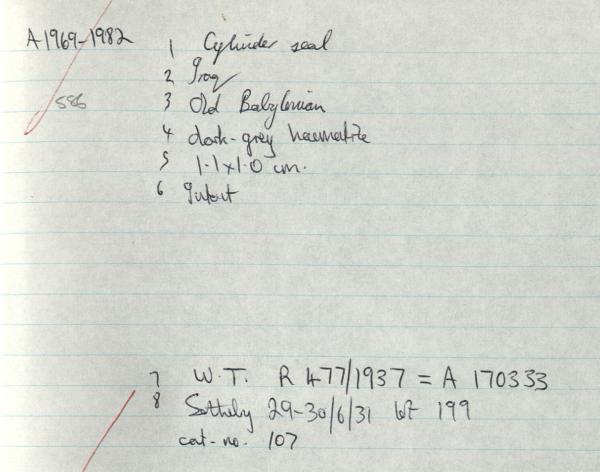 A1969-1982
586
1 Cylinder seal
2 Iraq
3 Old Babylonian
4 dark-grey haematite
5 1.1 x 1.0 cm.
6 Intact
7 W.T. R 477/1937 = A 170333
8 Sotheby 29-30/6/31 lot 199
cat-no. 107